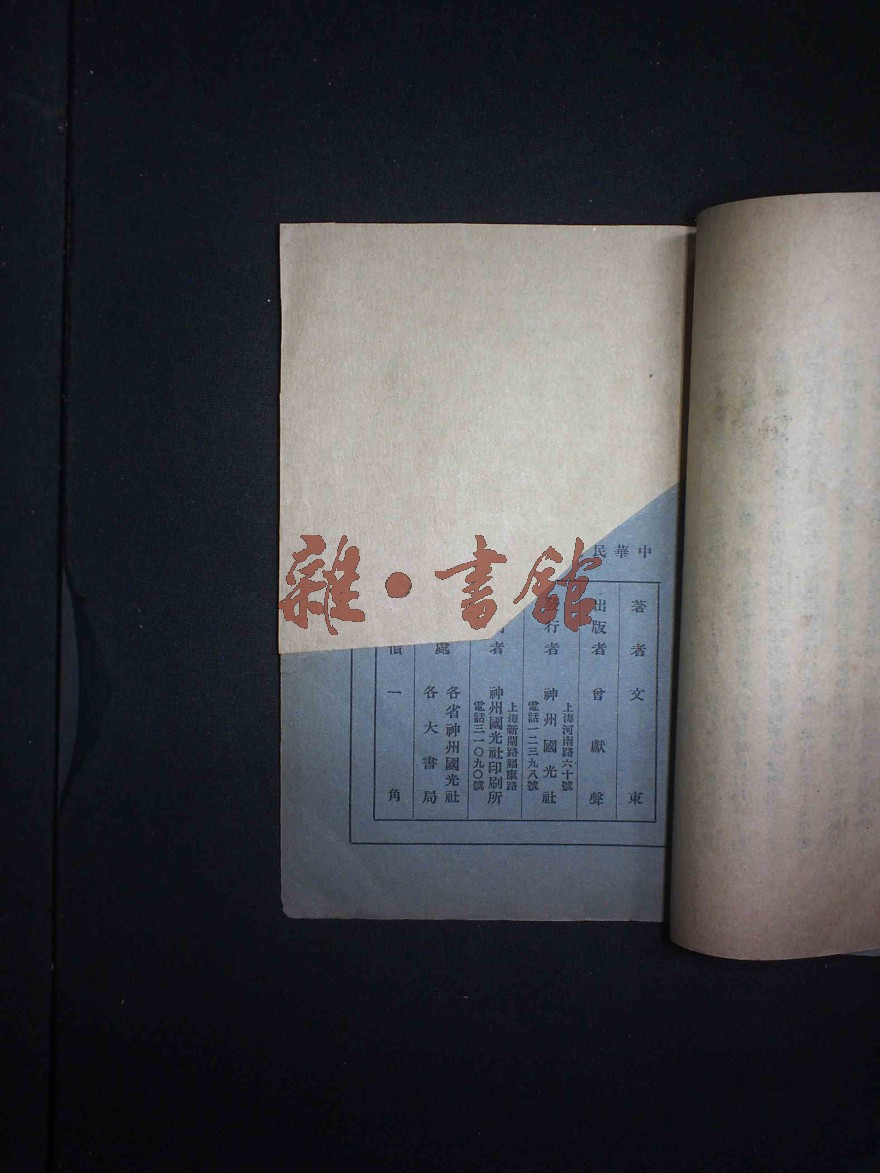 中華民
著者 文東
出版者 曾獻聲
行者 神州國光社
上海河南路六十號
電話一二三九八號
者 神州國光社印刷所
上海新閘路福康路
電話三一〇九〇號
處 各省神州國光社
各大書局
價 一角
雜·書館